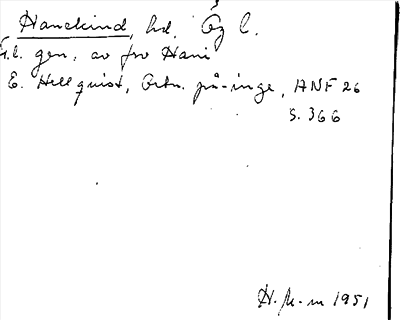 Hanekind, hd. Ög l.
F.l. gen. av fsv Hani
E. Hellquist, Ortn. på -inge, ANF 26
s. 366
H. K-m 1951